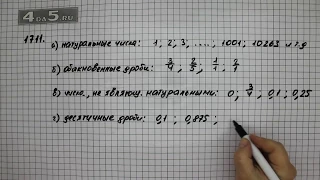 4АО5.RU
1711.
а) натуральные числа: 1, 2, 3, ....; 1001; 10263 и т.д
б) обыкновенные дроби: 3/4; 2/5; 1/1; 2/1
в) числа, не являющ. натуральными: 0; 3/4; 0,1; 0,25
г) десятичные дроби: 0,1; 0,875;